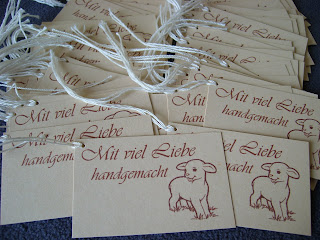 Mit viel Liebe
handgemacht
Mit viel Liebe
handgemacht
Mit viel Liebe
handgemacht
Mit viel Liebe
handgemacht